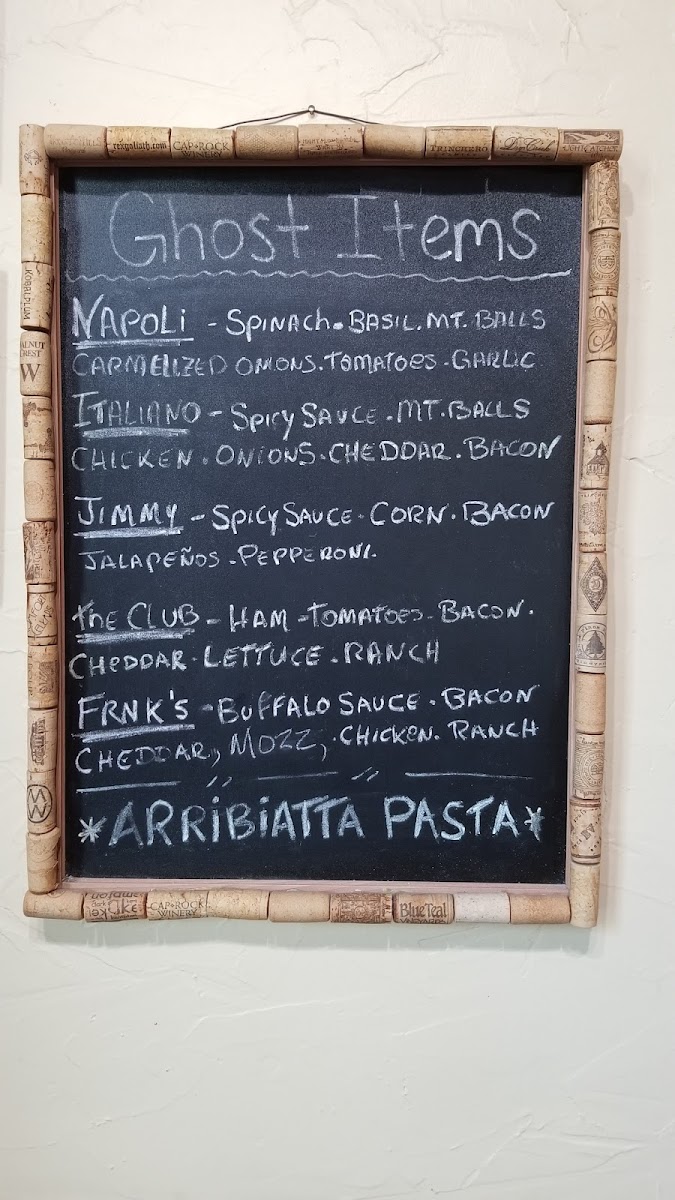 rexgoliath.com CAP★ROCK WINERY TRINCHERO
Ghost Items
NAPOLi - SPINACH. BASIL. MT. BALLS
CARMELIZED ONIONS. TOMATOES. GARLIC
ITALIANO - SPICY SAUCE. MT. BALLS
CHICKEN. ONIONS. CHEDDAR. BACON
JIMMY - SPICY SAUCE. CORN. BACON
JALAPEÑOS. PEPPERONI.
THE CLUB - HAM - TOMATOES. BACON.
CHEDDAR. LETTUCE. RANCH
FRNK'S - BUFFALO SAUCE. BACON
CHEDDAR, MOZZ, . CHICKEN. RANCH
*ARRiBiATTA PASTA*
CAP★ROCK WINERY Blue Teal